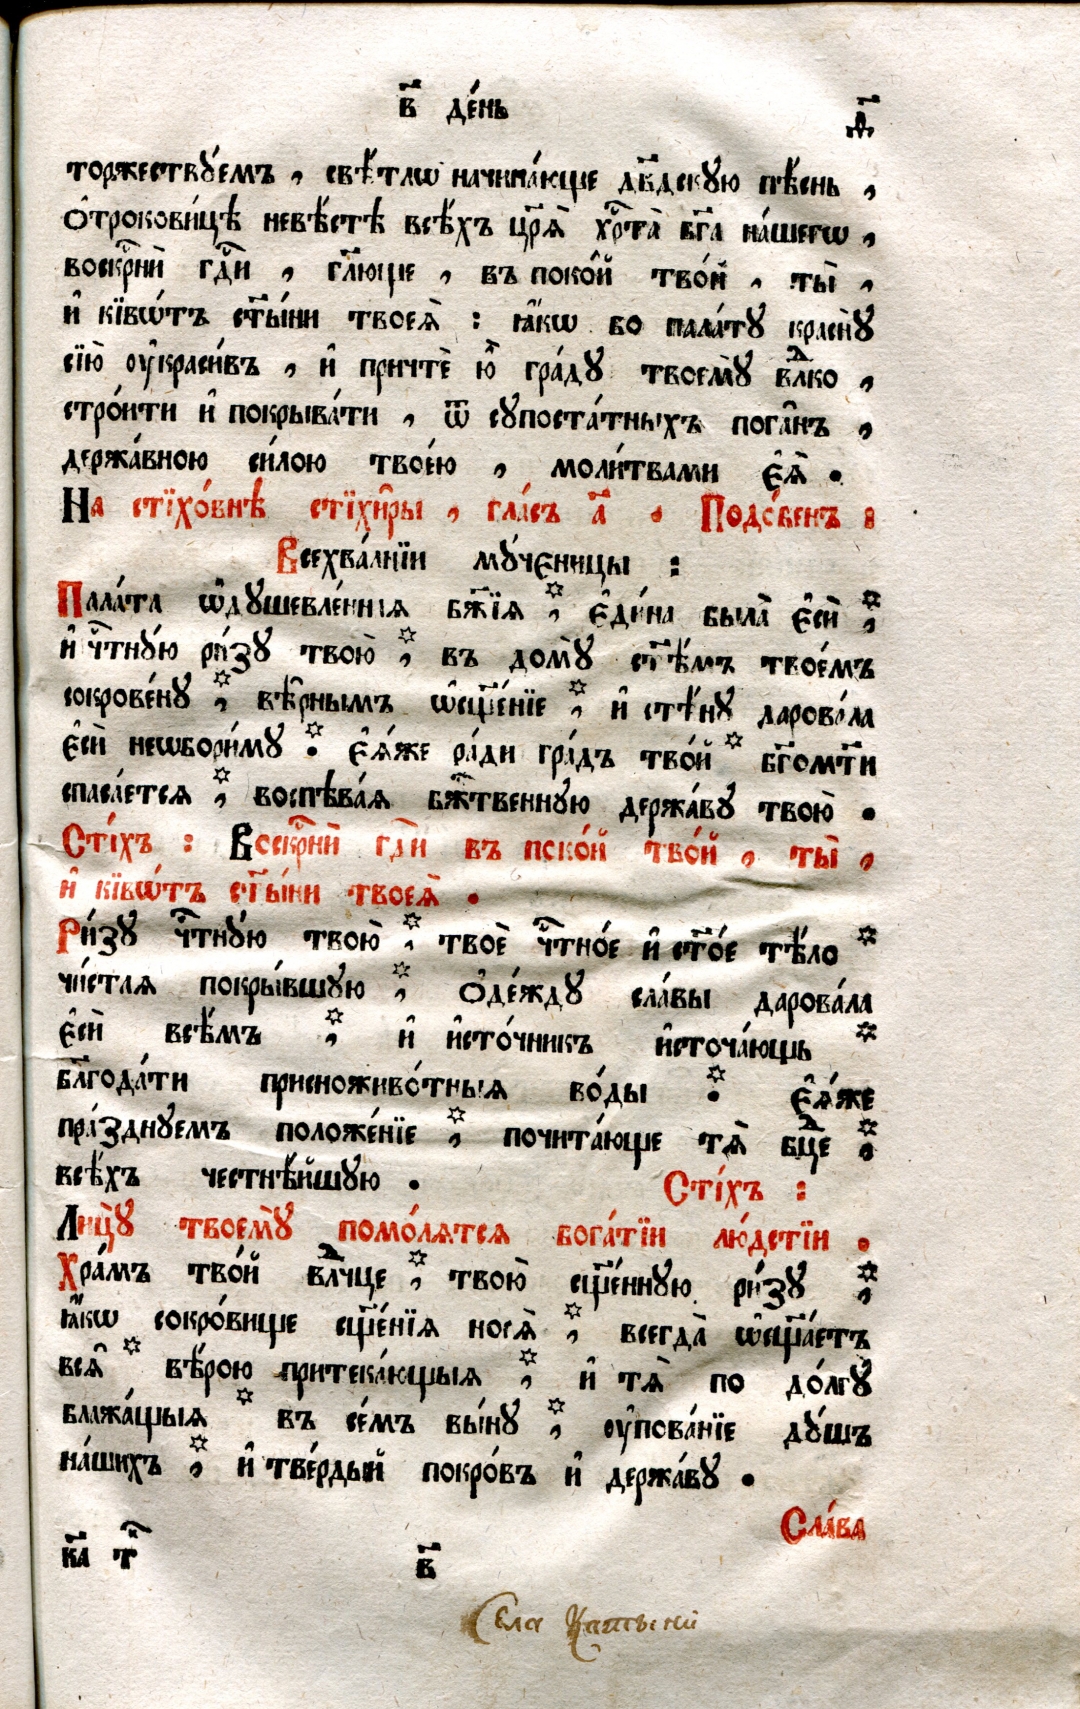 в҃ де́нь
д҃
торжествꙋ́емъ , свѣ́тлѡ начина́юще дв҃дскꙋю пѣ́снь ,
ѻ҆трокови́цѣ невѣ́стѣ всѣ́хъ цр҃ѧ̀ хр҇та̀ бг҃а на́шегѡ ,
воскр҇нѝ гд҇и , гл҃юще , въ поко́й тво́й , ты̀ ,
и҆ кїво́тъ ст҃ы́ни твоеѧ̀ : ꙗ҆́кѡ во пала́тꙋ краснꙋ
сїю̀ ᲂу҆краси́въ , и҆ причтѐ ю҆̀ гра́дꙋ твоемꙋ̀ влⷣко ,
стро́ити и҆ покрыва́ти , ѿ сꙋпоста́тныхъ пога̑нъ ,
держа́вною си́лою твое́ю , моли́твами є҆ѧ̀ .
На стїхо́внѣ стїхи̑ры , гла́съ а҃ . Подо́бенъ :
Всехва́лнїи мꙋ́чєницы :
Пала́та ѡ҆дꙋшевле́ннаѧ бж҃їѧ * , є҆ди́на была̀ є҆сѝ * ,
и҆ чⷭ҇тнꙋ́ю ри́зꙋ твою̀ * , въ домꙋ̀ ст҃ѣ́мъ твое́мъ
сокрове́нꙋ * , вѣ̑рнымъ ѡ҆сщ҃е́нїе * , и҆ стѣ́нꙋ дарова́ла
є҆сѝ неѡбори́мꙋ * . є҆ѧ́же ра́ди гра́дъ тво́й * бг҃омт҃и
спаса́етсѧ * , воспѣва́ѧ бжⷭ҇твенную держа́вꙋ твою̀ .
Сті́хъ : Воскр҇нѝ гд҇и въ поко́й тво́й , ты̀ ,
и҆ кївѡ́тъ ст҃ы́ни твоеѧ̀ .
Ри́зꙋ чⷭ҇тнꙋ́ю твою̀ * , твоѐ чⷭ҇тно́е и҆ ст҃о́е тѣ́ло *
чи́стаѧ покры́вшꙋю * , ѻ҆де́ждꙋ сла́вы дарова́ла
є҆сѝ всѣ́мъ * , и҆ и҆сто́чникъ и҆сточа́ющь *
блг҃ода́ти присноживо́тныѧ во́ды * . є҆ѧ́же
пра́зднꙋемъ положе́нїе * , почита́юще тѧ̀ бцⷣе * ,
всѣ́хъ честнѣ́йшꙋю . Сті́хъ :
Лицꙋ̀ твоемꙋ̀ помо́лѧтсѧ бога́тїи лю́дстїи .
Хра́мъ тво́й влⷣчце * , твою̀ сщ҃е́ннꙋю ри́зꙋ * ,
ꙗ҆́кѡ сокро́вище сщ҃е́нїѧ носѧ̀ * , всегда̀ ѡ҆сщ҃а́етъ
всѧ̑ * вѣ́рою притека́ющыѧ * , и҆ тѧ̀ по до́лгꙋ
блажа́щыѧ * въ се́мъ вы́нꙋ * , ᲂу҆пова́нїе дꙋ́шъ
на́шихъ * , и҆ тве́рдый покро́въ и҆ держа́вꙋ .
Сла́ва
к҃а т҃и в҃
Села